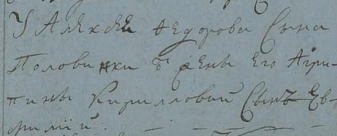 У Алексея Федорова Сына
Половинки ѣ жены Его Агри-
пины Кирилловой Сынъ Ев-
фимий.